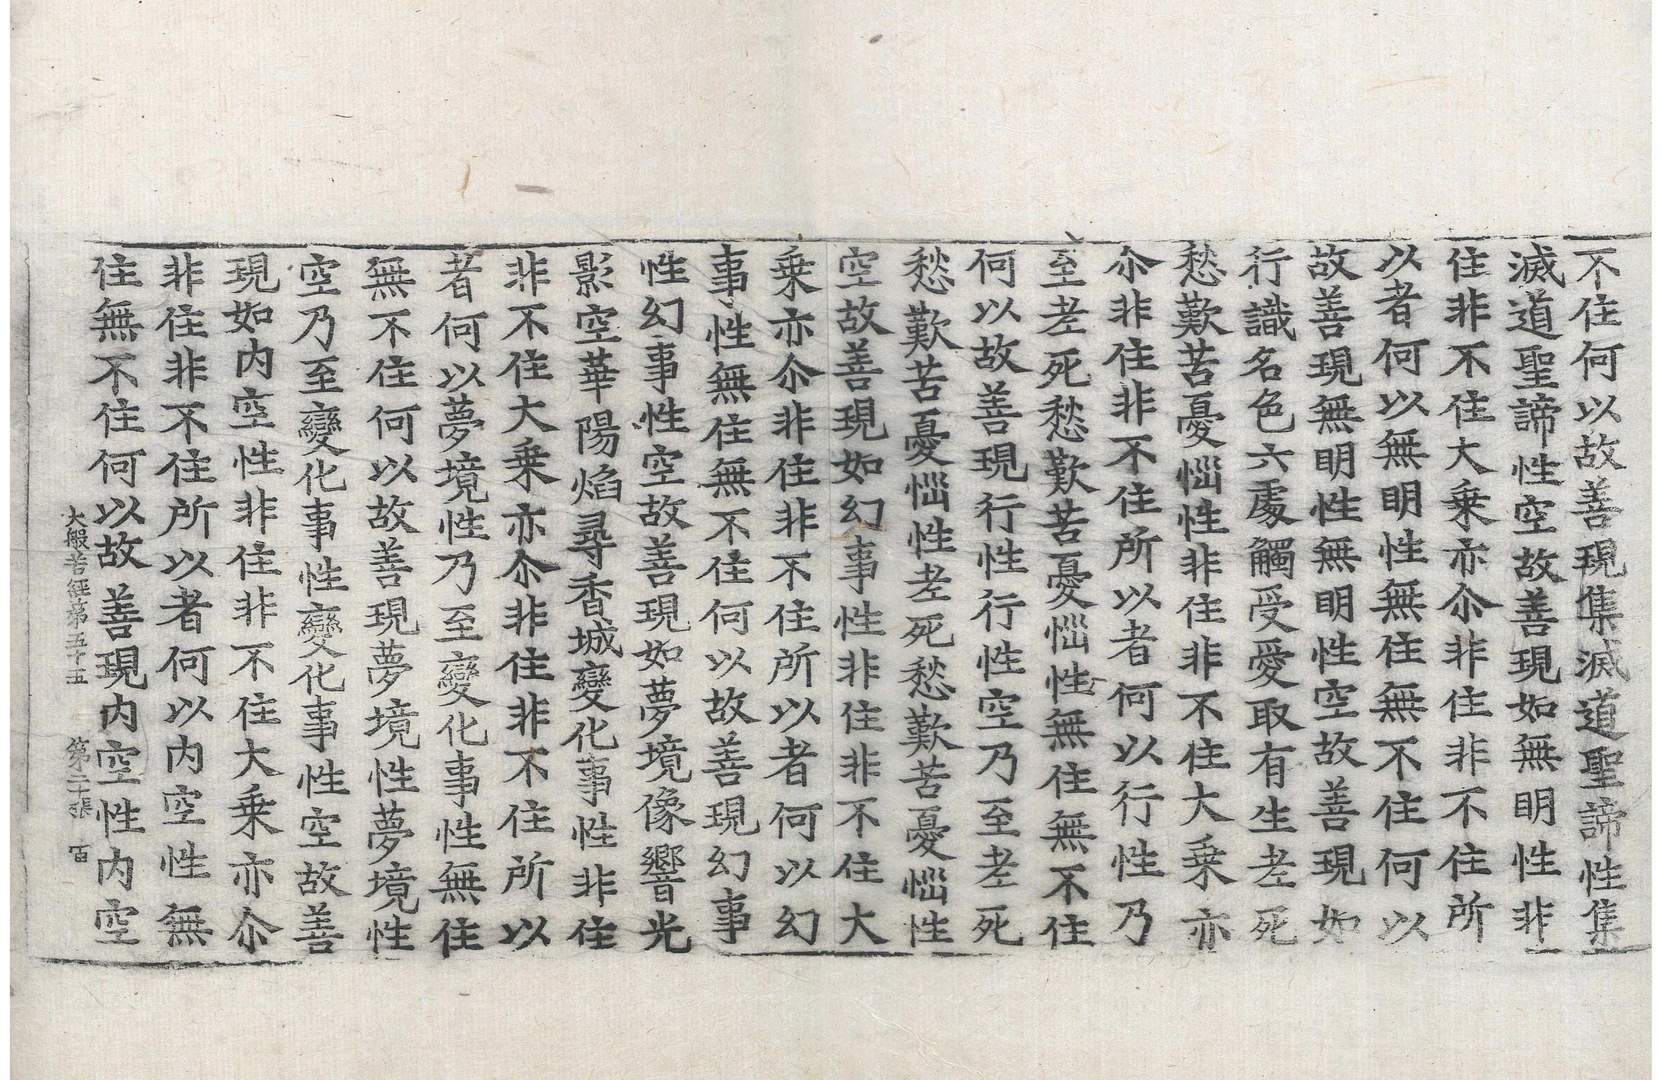 不住何以故善現集滅道聖諦性集
滅道聖諦性空故善現如無明性非
住非不住大乗亦尒非住非不住所
以者何以無明性無住無不住何以
故善現無明性無明性空故善現如
行識名色六處觸受愛取有生老死
愁歎苦憂惱性非住非不住大乗亦
尒非住非不住所以者何以行性乃
至老死愁歎苦憂惱性無住無不住
何以故善現行性行性空乃至老死
愁歎苦憂惱性老死愁歎苦憂惱性
空故善現如幻事性非住非不住大
乗亦尒非住非不住所以者何以幻
事性無住無不住何以故善現幻事
性幻事性空故善現如夢境像響光
影空華陽焰尋香城變化事性非住
非不住大乗亦尒非住非不住所以
者何以夢境性乃至變化事性無住
無不住何以故善現夢境性夢境性
空乃至變化事性變化事性空故善
現如内空性非住非不住大乗亦尒
非住非不住所以者何以内空性無
住無不住何以故善現内空性内空
大般若經第五十五 第二十張 宙